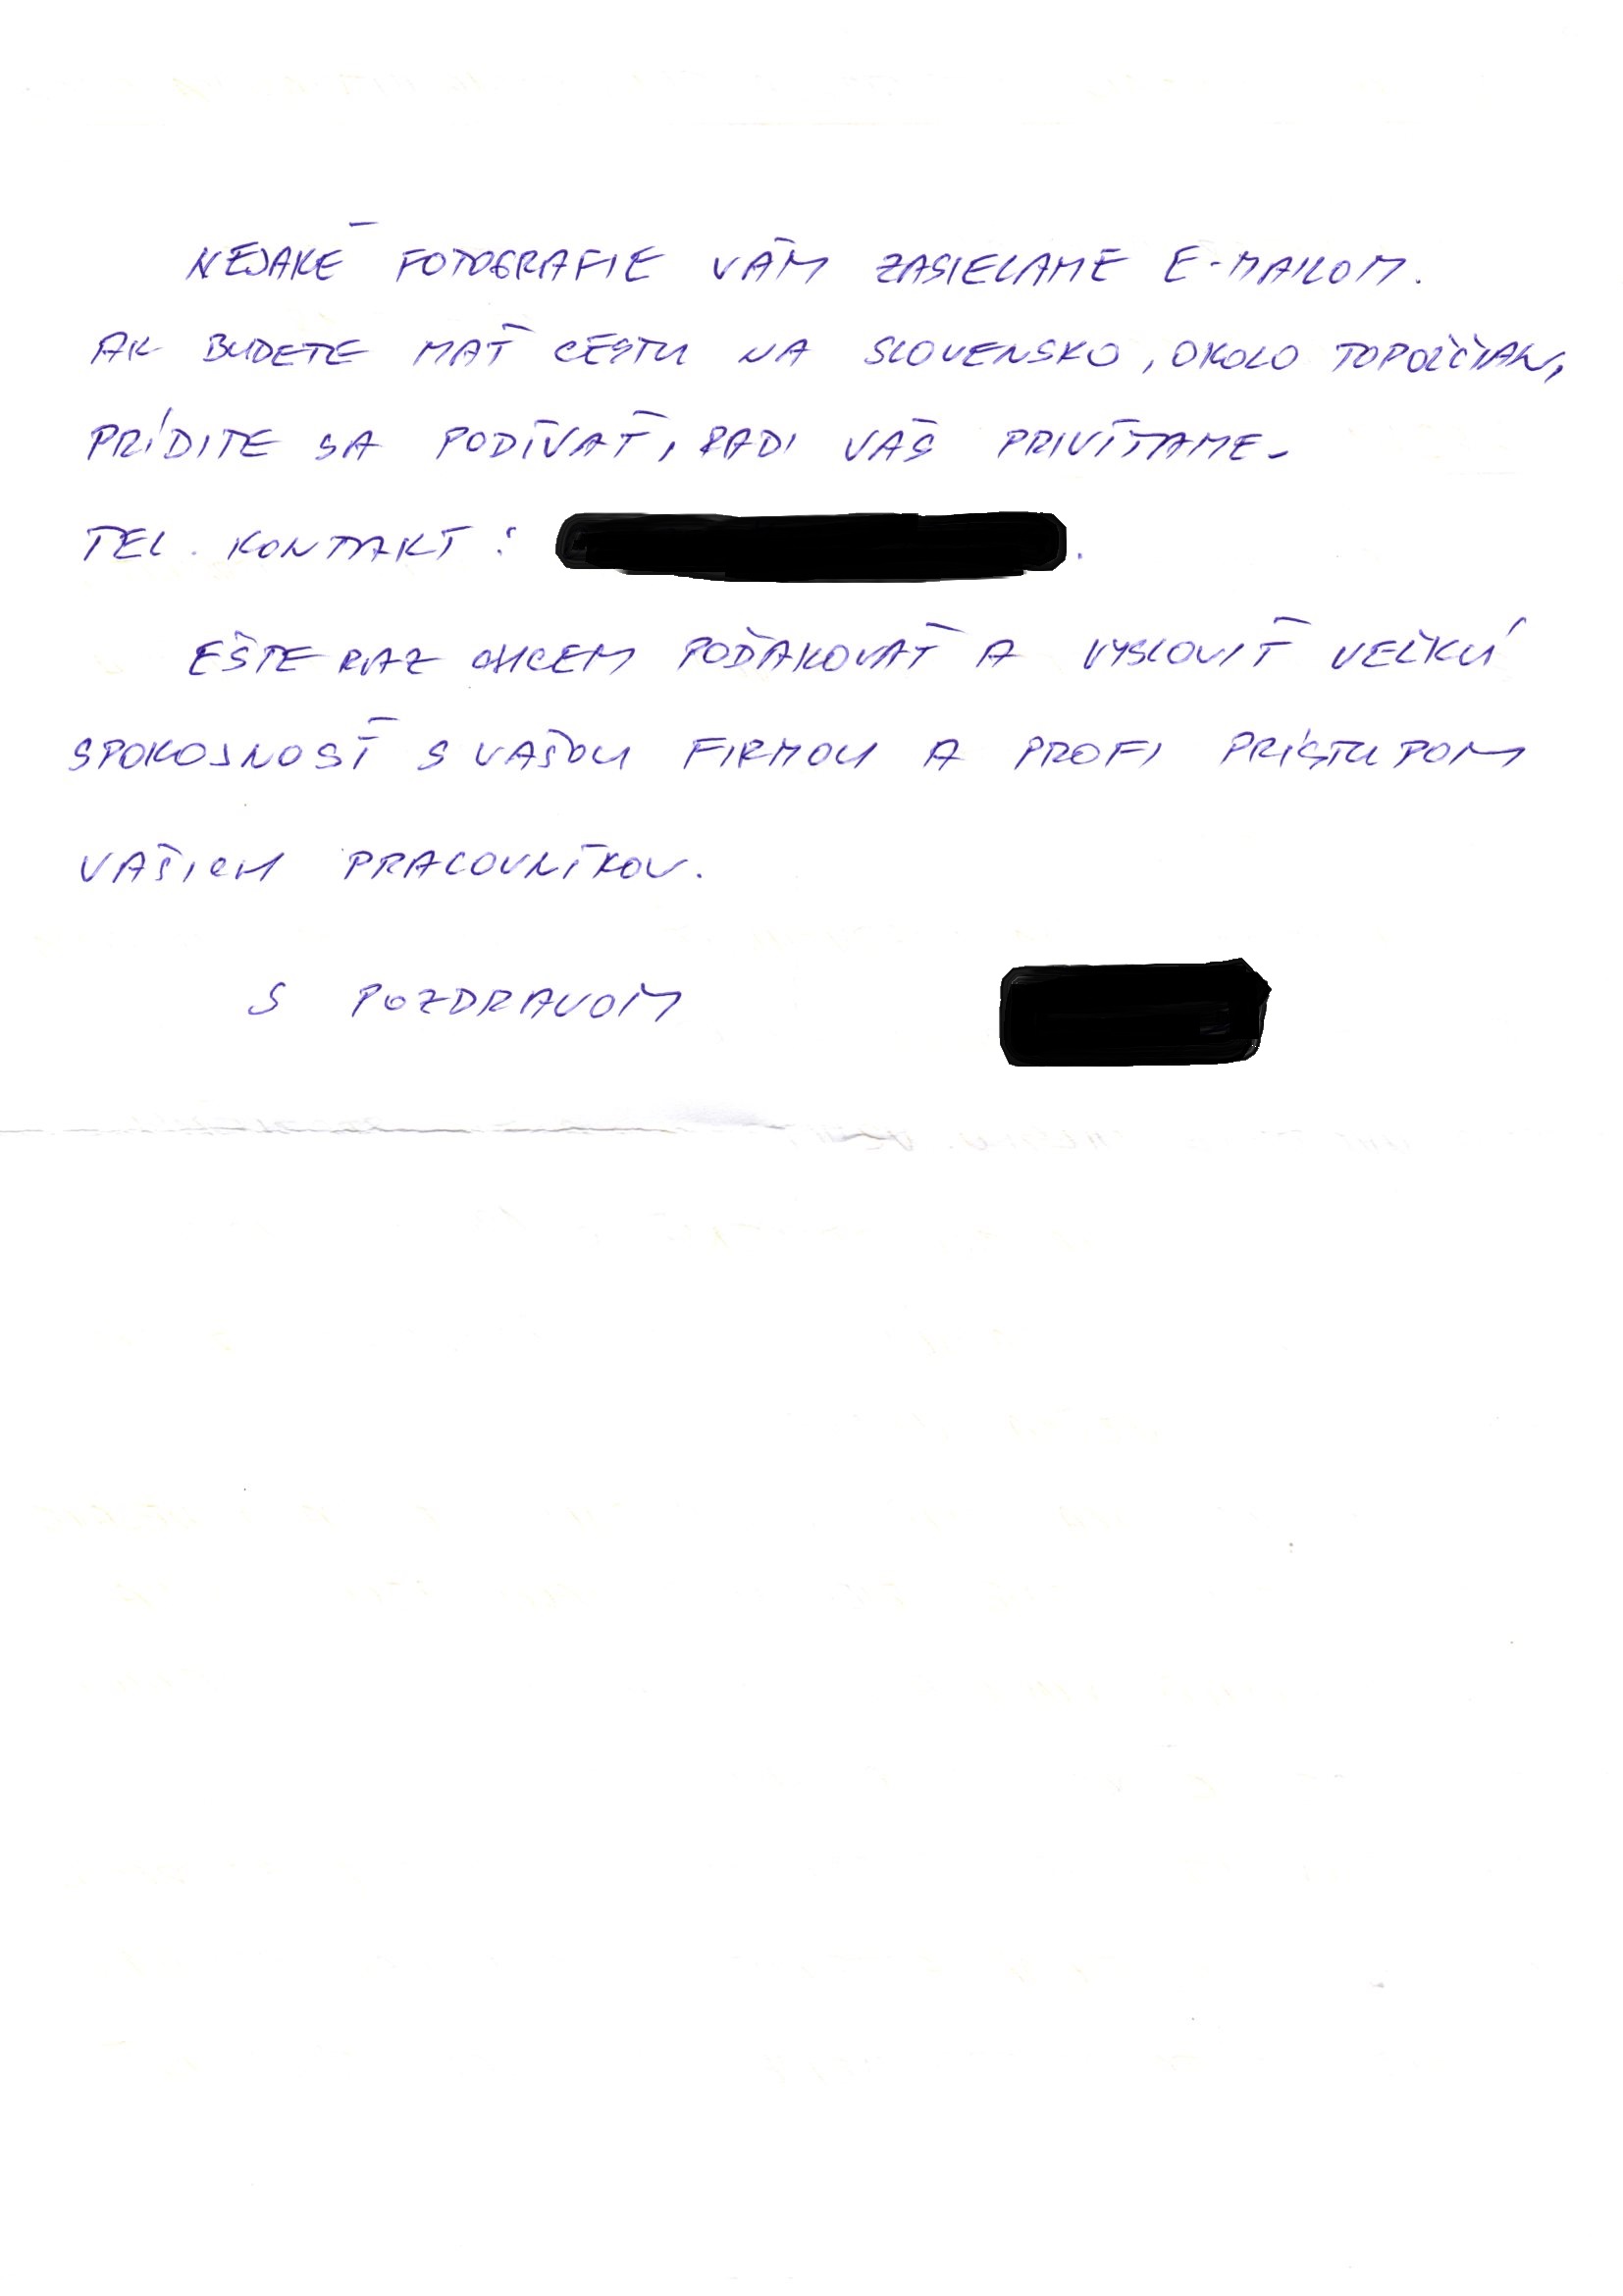 NEJAKÉ FOTOGRAFIE VÁM ZASIELAME E-MAILOM.
AK BUDETE MAŤ CESTU NA SLOVENSKO, OKOLO TOPOĽČIAN,
PRÍDITE SA PODÍVAŤ, RADI VÁS PRIVÍTAME.
TEL. KONTAKT:
EŠTE RAZ CHCEM POĎAKOVAŤ A VYSLOVIŤ VEĽKÚ
SPOKOJNOSŤ S VAŠOU FIRMOU A PROFI PRÍSTUPOM
VAŠICH PRACOVNÍKOV.
S POZDRAVOM